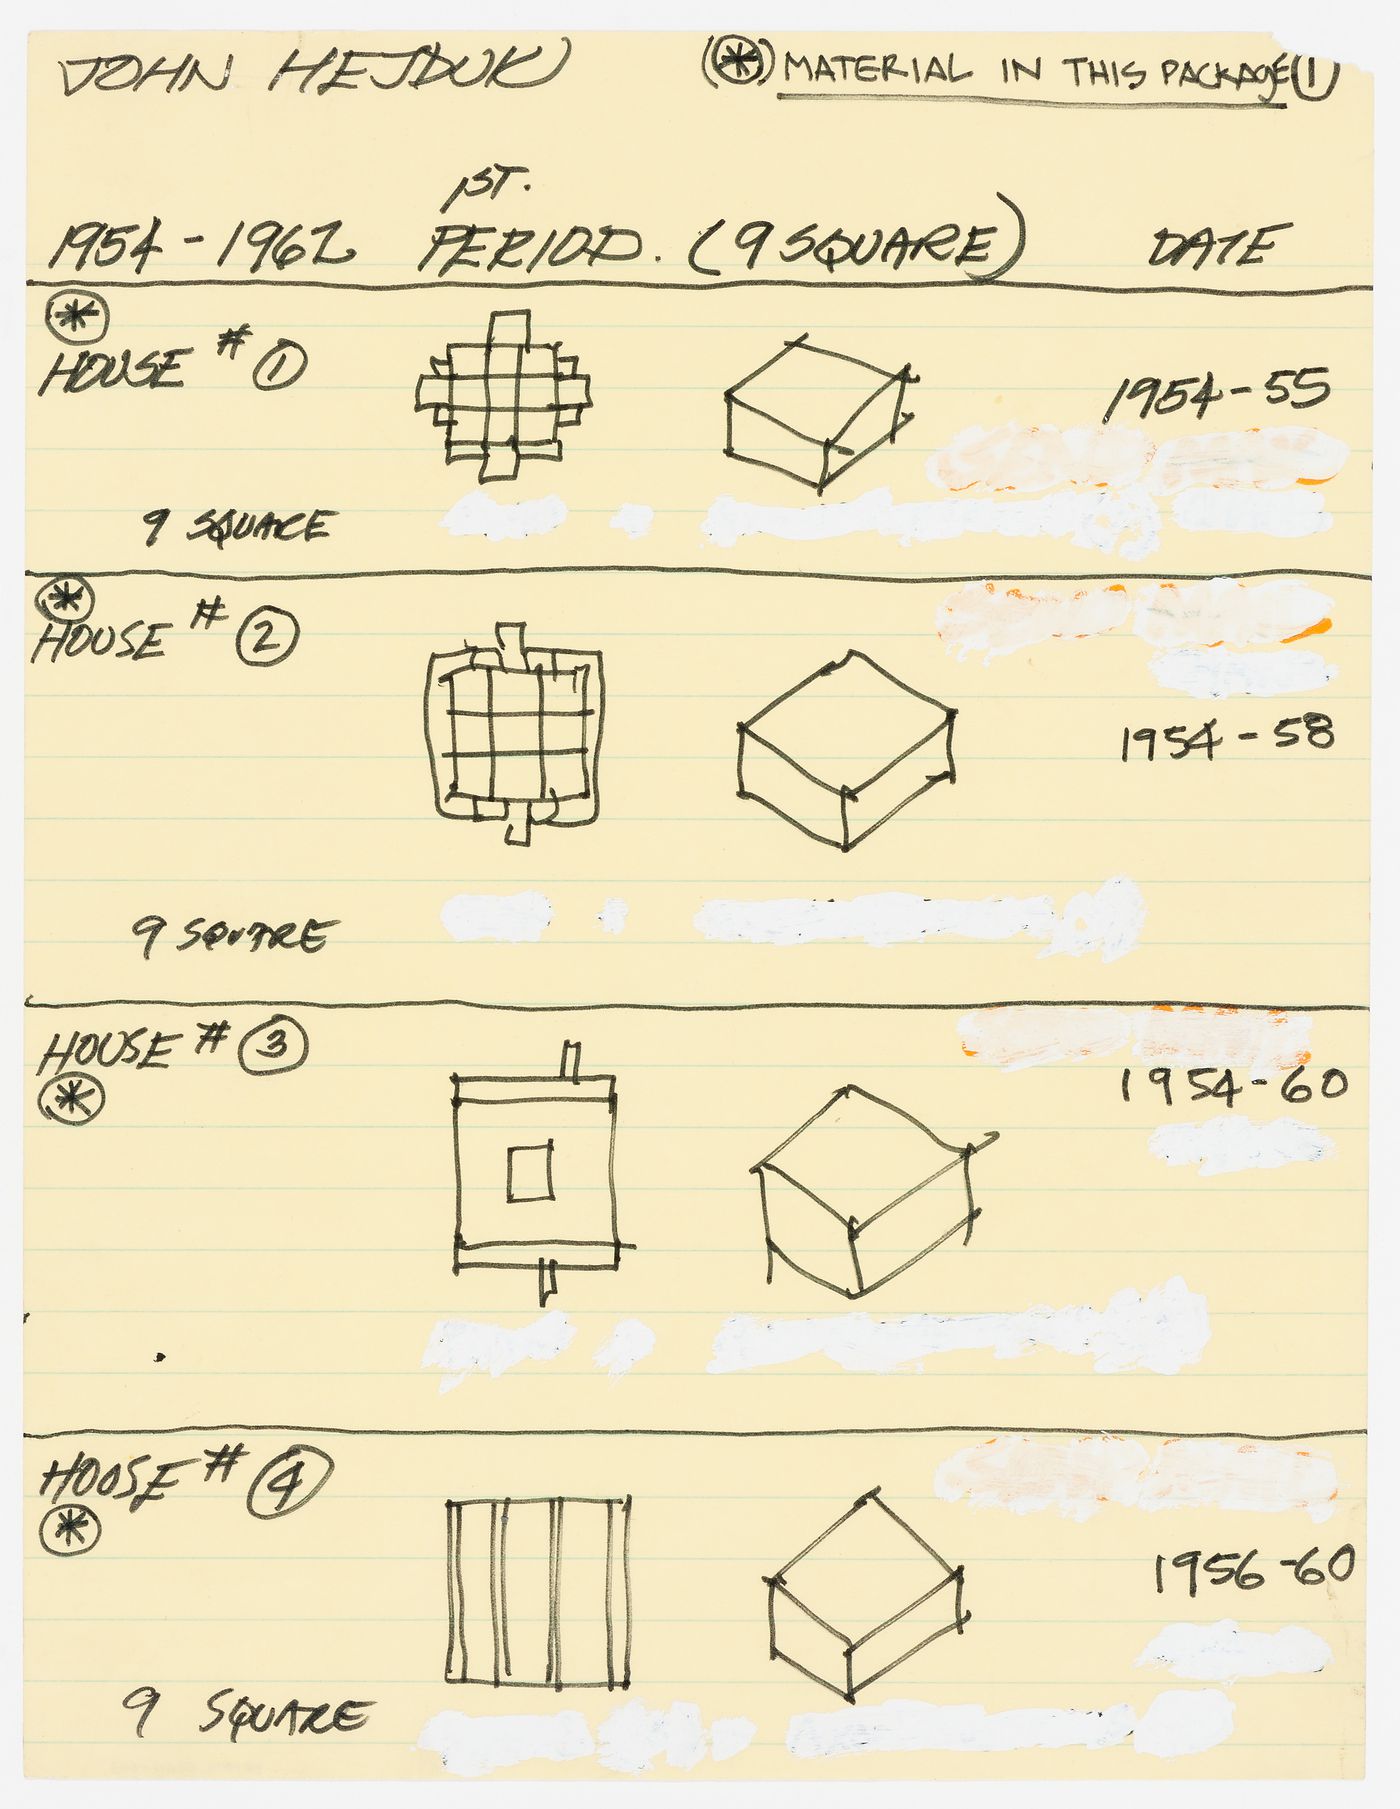 JOHN HEJDUK
(*) MATERIAL IN THIS PACKAGE (1)
1ST.
1954 - 1962 PERIOD. (9 SQUARE) DATE
*
HOUSE # 1
1954-55
9 SQUARE
*
HOUSE # 2
1954-58
9 SQUARE
HOUSE # 3
*
1954-60
HOUSE # 4
*
1956-60
9 SQUARE